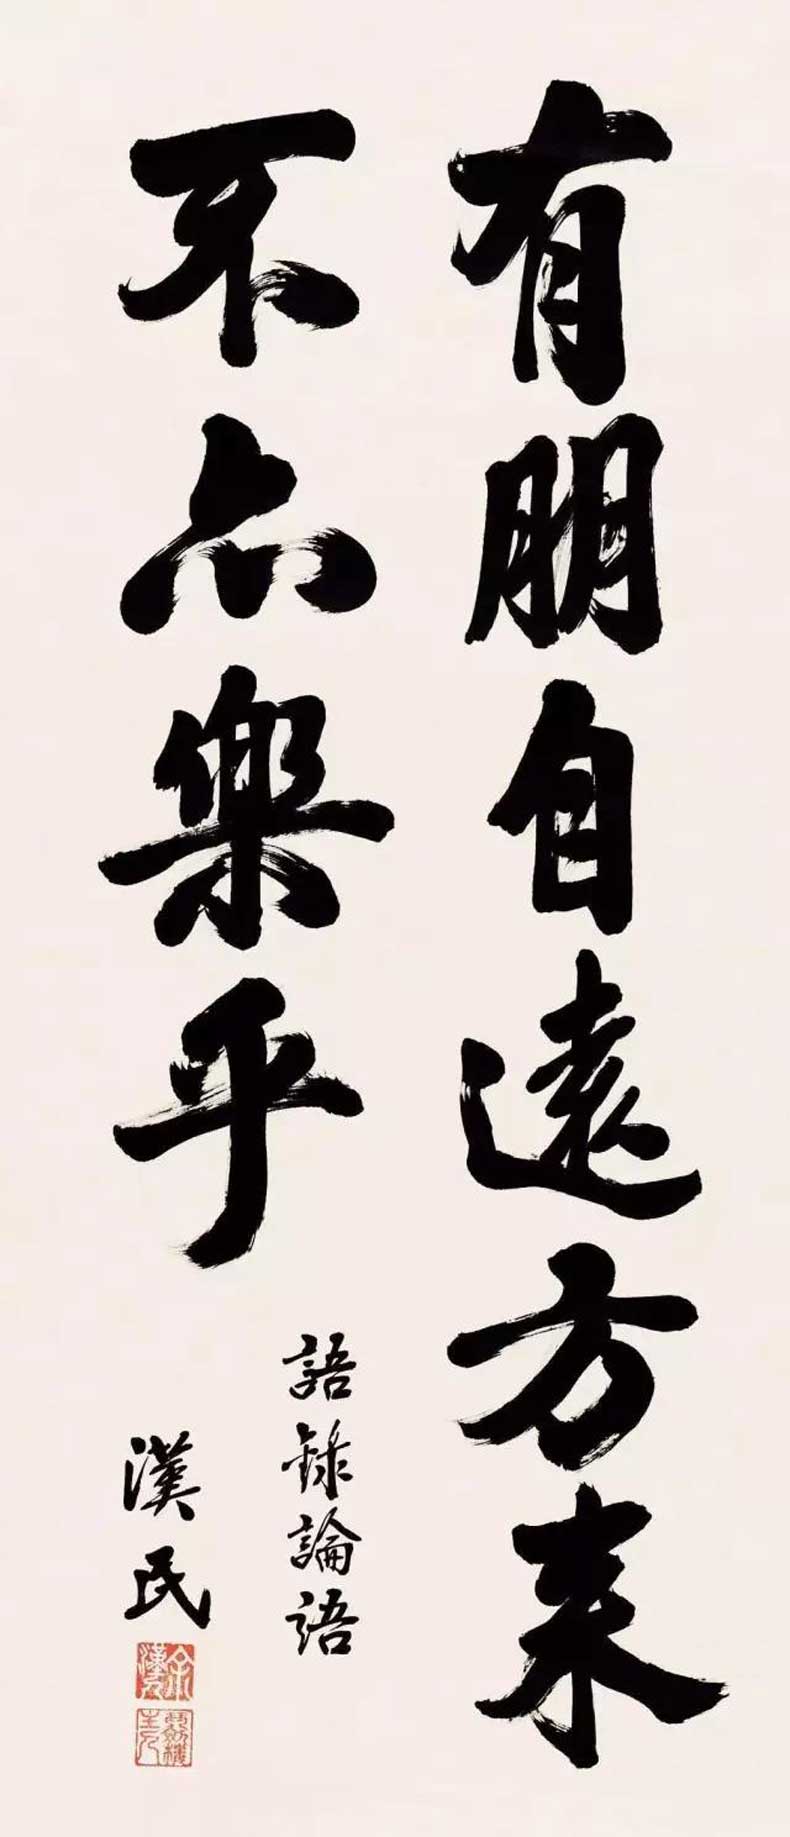 有朋自遠方来
不亦樂乎
語錄論語
漢民